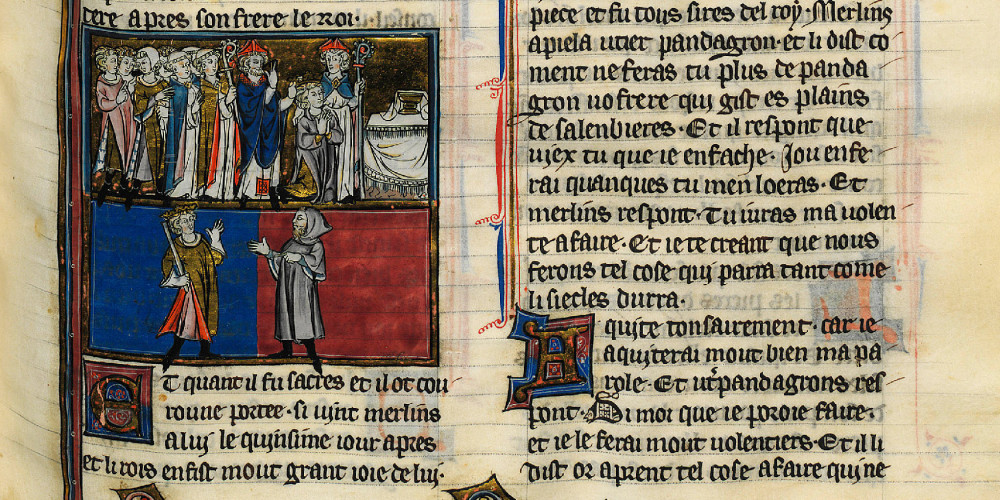 tere apres son frere le roi·
Et quant il fu sacres et il ot cou
roune portee· si vint merlins
a luy le quinsime iour apres
et li rois en fist mout grant ioie de luy·
piece et fu tous sires del roy· Merlins
apiela utier pandagron· et li dist co
ment ne feras tu plus de panda
gron uo frere qui gist es plains
de salenbieres· Et il respont que
viex tu que ie en fache· Jou en fe
rai quanques tu men loeras· Et
merlins respont· Tu iuras ma uolen
te a faire· Et ie te creant que nous
ferons tel cose qui parra tant come
li siecles durra·
Aquite ton sairement· car ie
aquiterai mout bien ma pa
role· Et ut'pandagrons res
pont· Di moi que ie poroie faire·
et ie le ferai mout uolentiers· Et il li
dist or aprent tel cose a faire qui ne